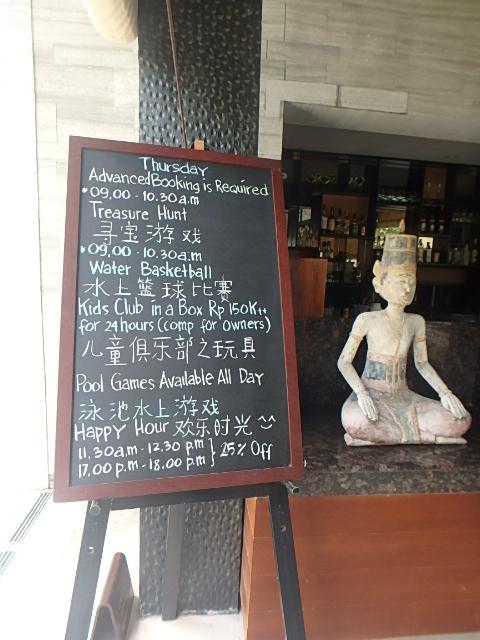 Thursday
Advanced Booking is Required
*09.00 - 10.30 a.m
Treasure Hunt
寻宝游戏
*09.00 - 10.30 a.m
Water Basketball
水上篮球比赛
Kids Club in a Box Rp 150K++
for 24 hours (comp for Owners)
儿童俱乐部之玩具
Pool Games Available All Day
泳池水上游戏
Happy Hour 欢乐时光
11.30 a.m - 12.30 p.m } 25% Off
17.00 p.m - 18.00 p.m